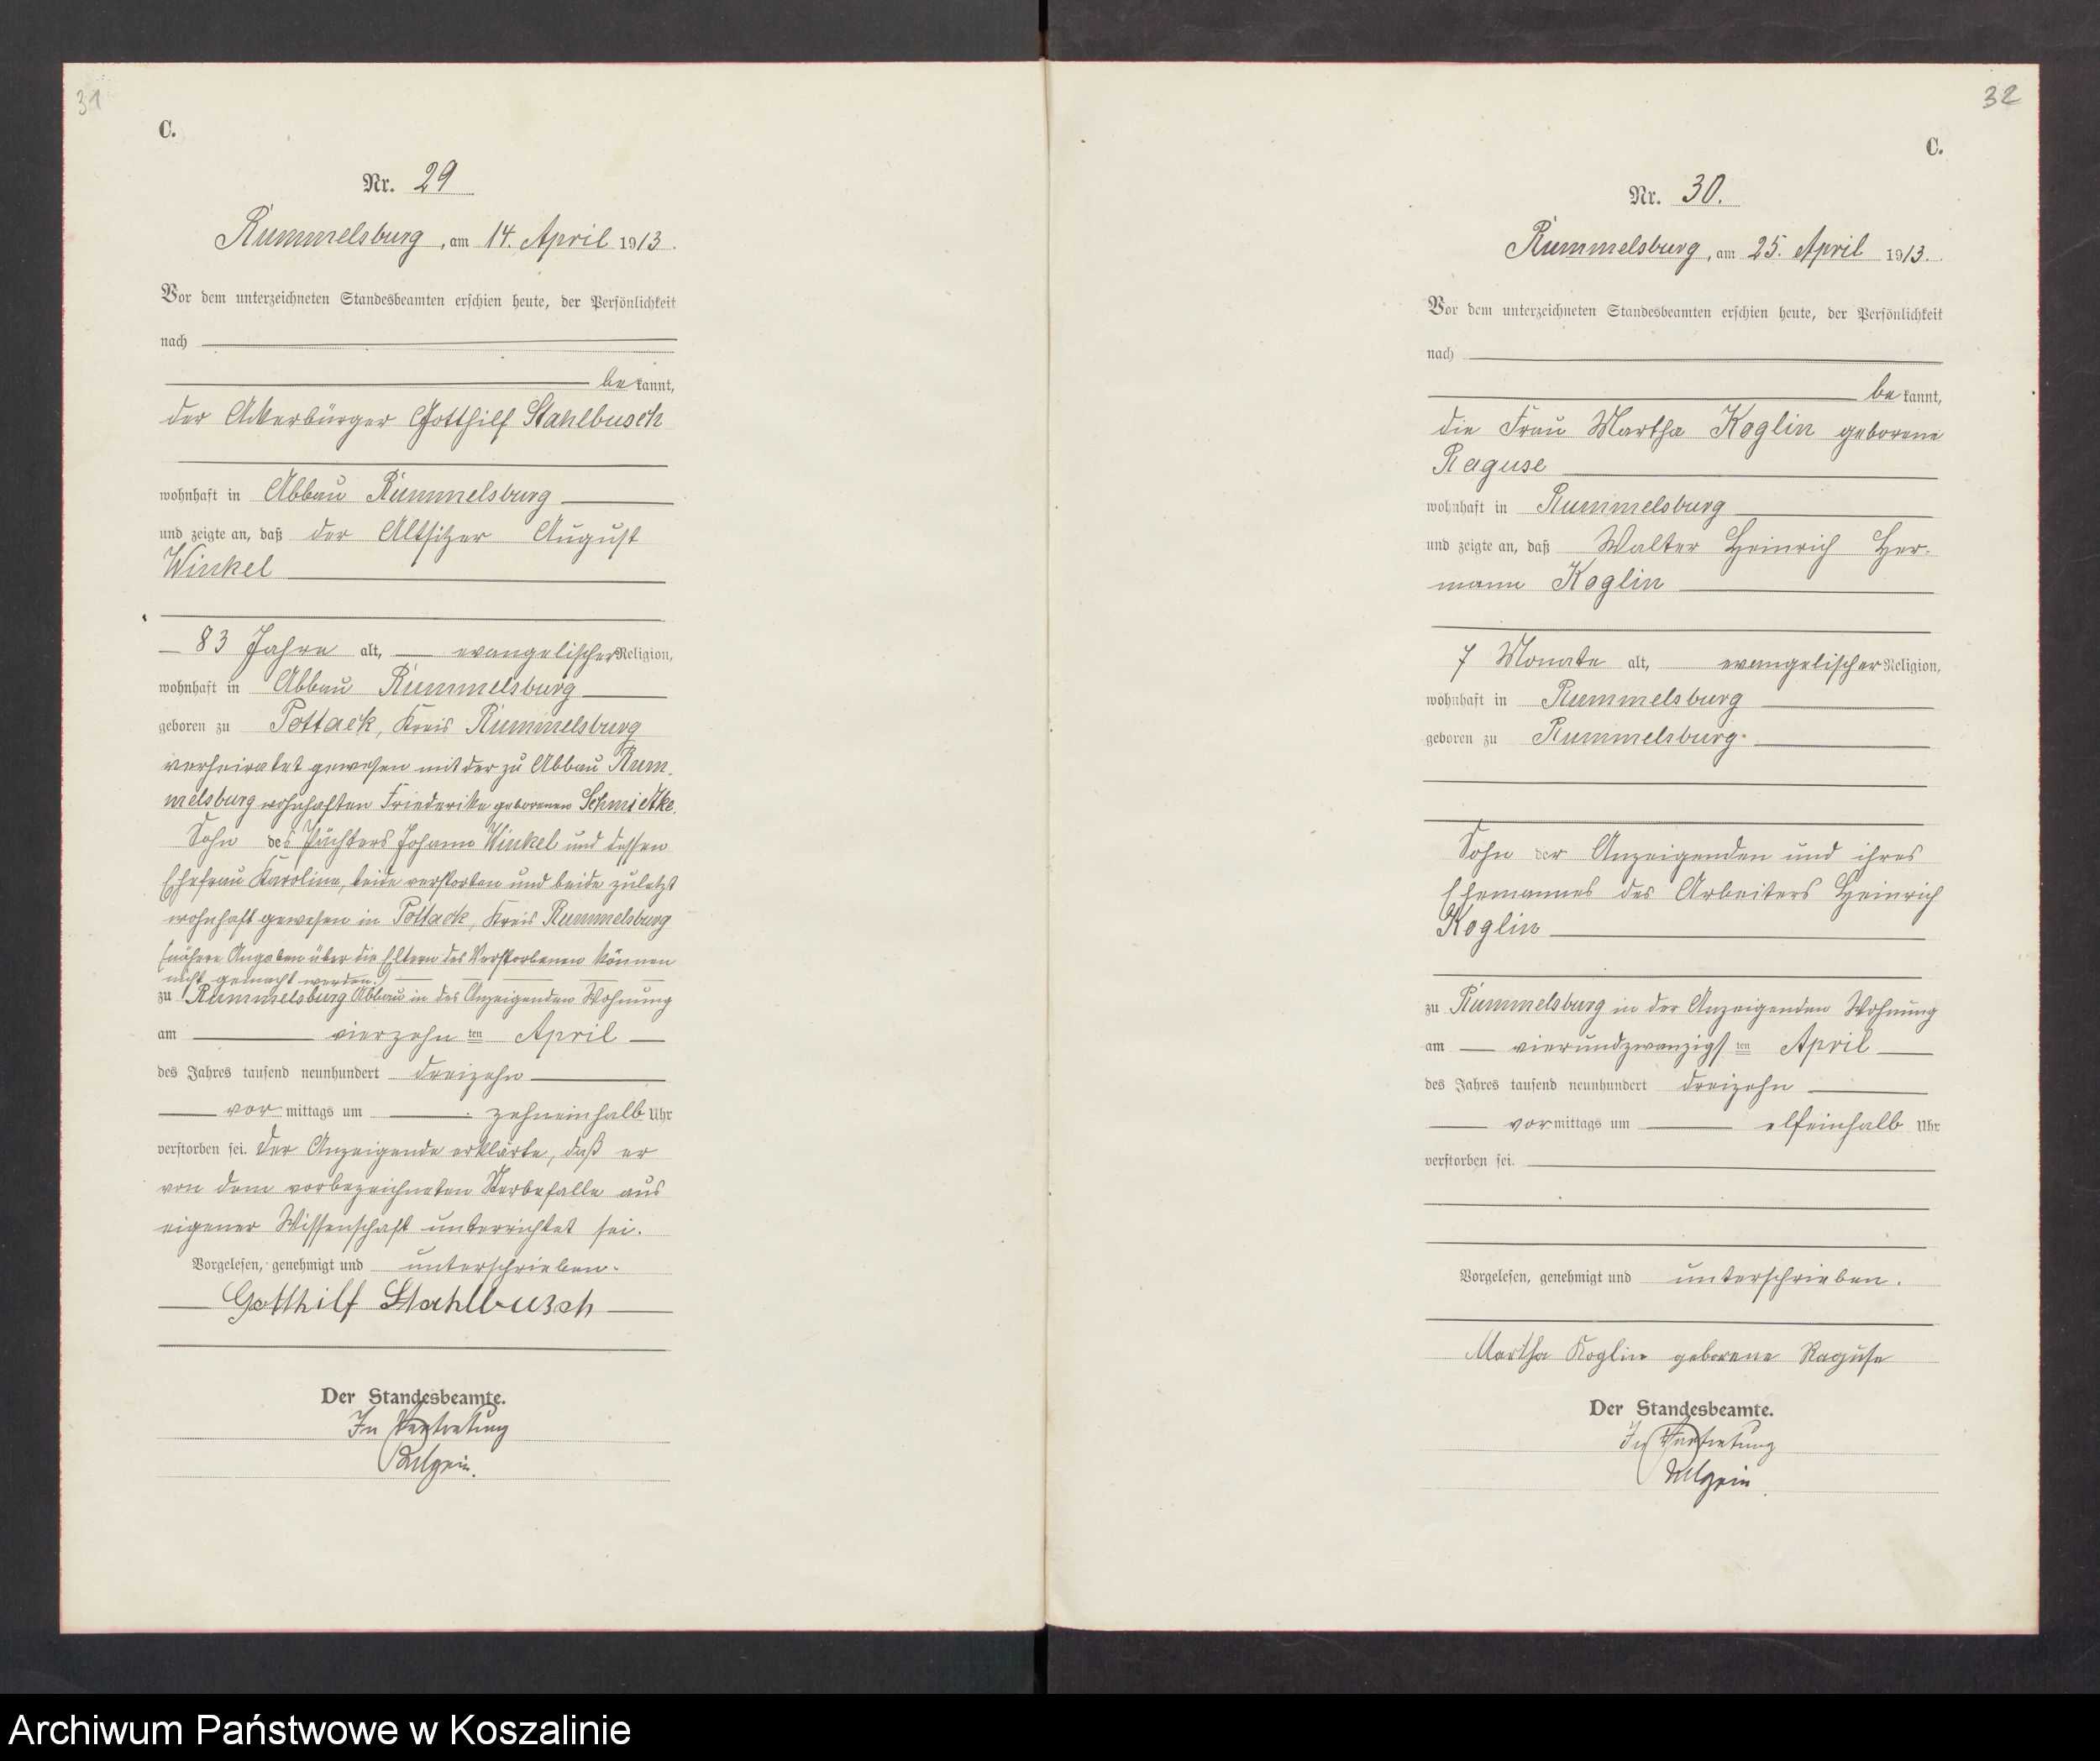 31
C.
Nr. 29
Rummelsburg, am 14. April 1913.
Vor dem unterzeichneten Standesbeamten erschien heute, der Persönlichkeit
nach
bekannt,
der Ackerbürger Gotthilf Stahlbusch
wohnhaft in Abbau Rummelsburg
und zeigte an, daß der Altsitzer August
Winkel
83 Jahre alt, evangelischer Religion,
wohnhaft in Abbau Rummelsburg
geboren zu Pottack, Kreis Rummelsburg
verheiratet gewesen mit der zu Abbau Rum-
melsburg wohnhaften Friederike geborenen Schmidtke.
Sohn des Pächters Johann Winkel und dessen
Ehefrau Karoline, beide verstorben und beide zuletzt
wohnhaft gewesen in Pottack, Kreis Rummelsburg
(nähere Angaben über die Eltern des Verstorbenen können
nicht gemacht werden.)
zu Rummelsburg Abbau in des Anzeigenden Wohnung
am vierzehnten April
des Jahres tausend neunhundert dreizehn
vormittags um zehneinhalb Uhr
verstorben sei. Der Anzeigende erklärte, daß er
von dem vorbezeichneten Sterbefalle aus
eigener Wissenschaft unterrichtet sei.
Vorgelesen, genehmigt und unterschrieben.
Gotthilf Stahlbusch
Der Standesbeamte.
In Vertretung
32
C.
Nr. 30.
Rummelsburg, am 25. April 1913.
Vor dem unterzeichneten Standesbeamten erschien heute, der Persönlichkeit
nach
bekannt,
die Frau Martha Koglin geborene
Raguse
wohnhaft in Rummelsburg
und zeigte an, daß Walter Heinrich Her-
mann Koglin
7 Monate alt, evangelischer Religion,
wohnhaft in Rummelsburg
geboren zu Rummelsburg
Sohn der Anzeigenden und ihres
Ehemannes des Arbeiters Heinrich
Koglin
zu Rummelsburg in der Anzeigenden Wohnung
am vierundzwanzigsten April
des Jahres tausend neunhundert dreizehn
vormittags um elfeinhalb Uhr
verstorben sei.
Vorgelesen, genehmigt und unterschrieben.
Martha Koglin geborene Raguse
Der Standesbeamte.
In Vertretung
Archiwum Państwowe w Koszalinie